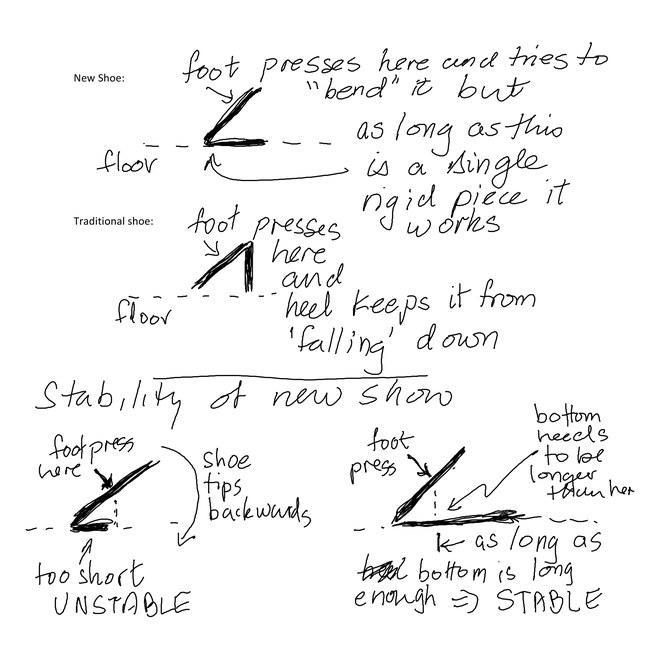 foot presses here and tries to
New Shoe:
"bend" it but
as long as this
floor
is a single
rigid piece it
works
Traditional shoe:
foot presses
here
and
floor
heel keeps it from
'falling' down
Stability of new show
foot press
here
shoe
tips
backwards
too short
UNSTABLE
foot
press
bottom
needs
to be
longer
than her
as long as
bottom is long
enough => STABLE